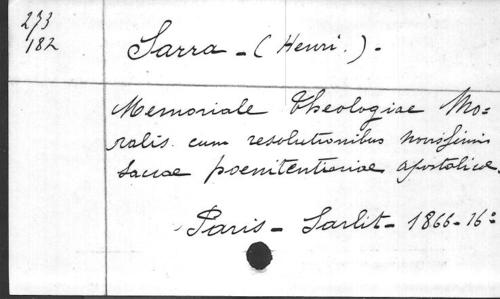 273
182
Sarra - (Henri.) -
Memoriale theologiae Mo=
ralis cum resolutionibus novissimis
sacrae poenitentiariae apostolicae.
Paris - Sarlit - 1866 - 16º